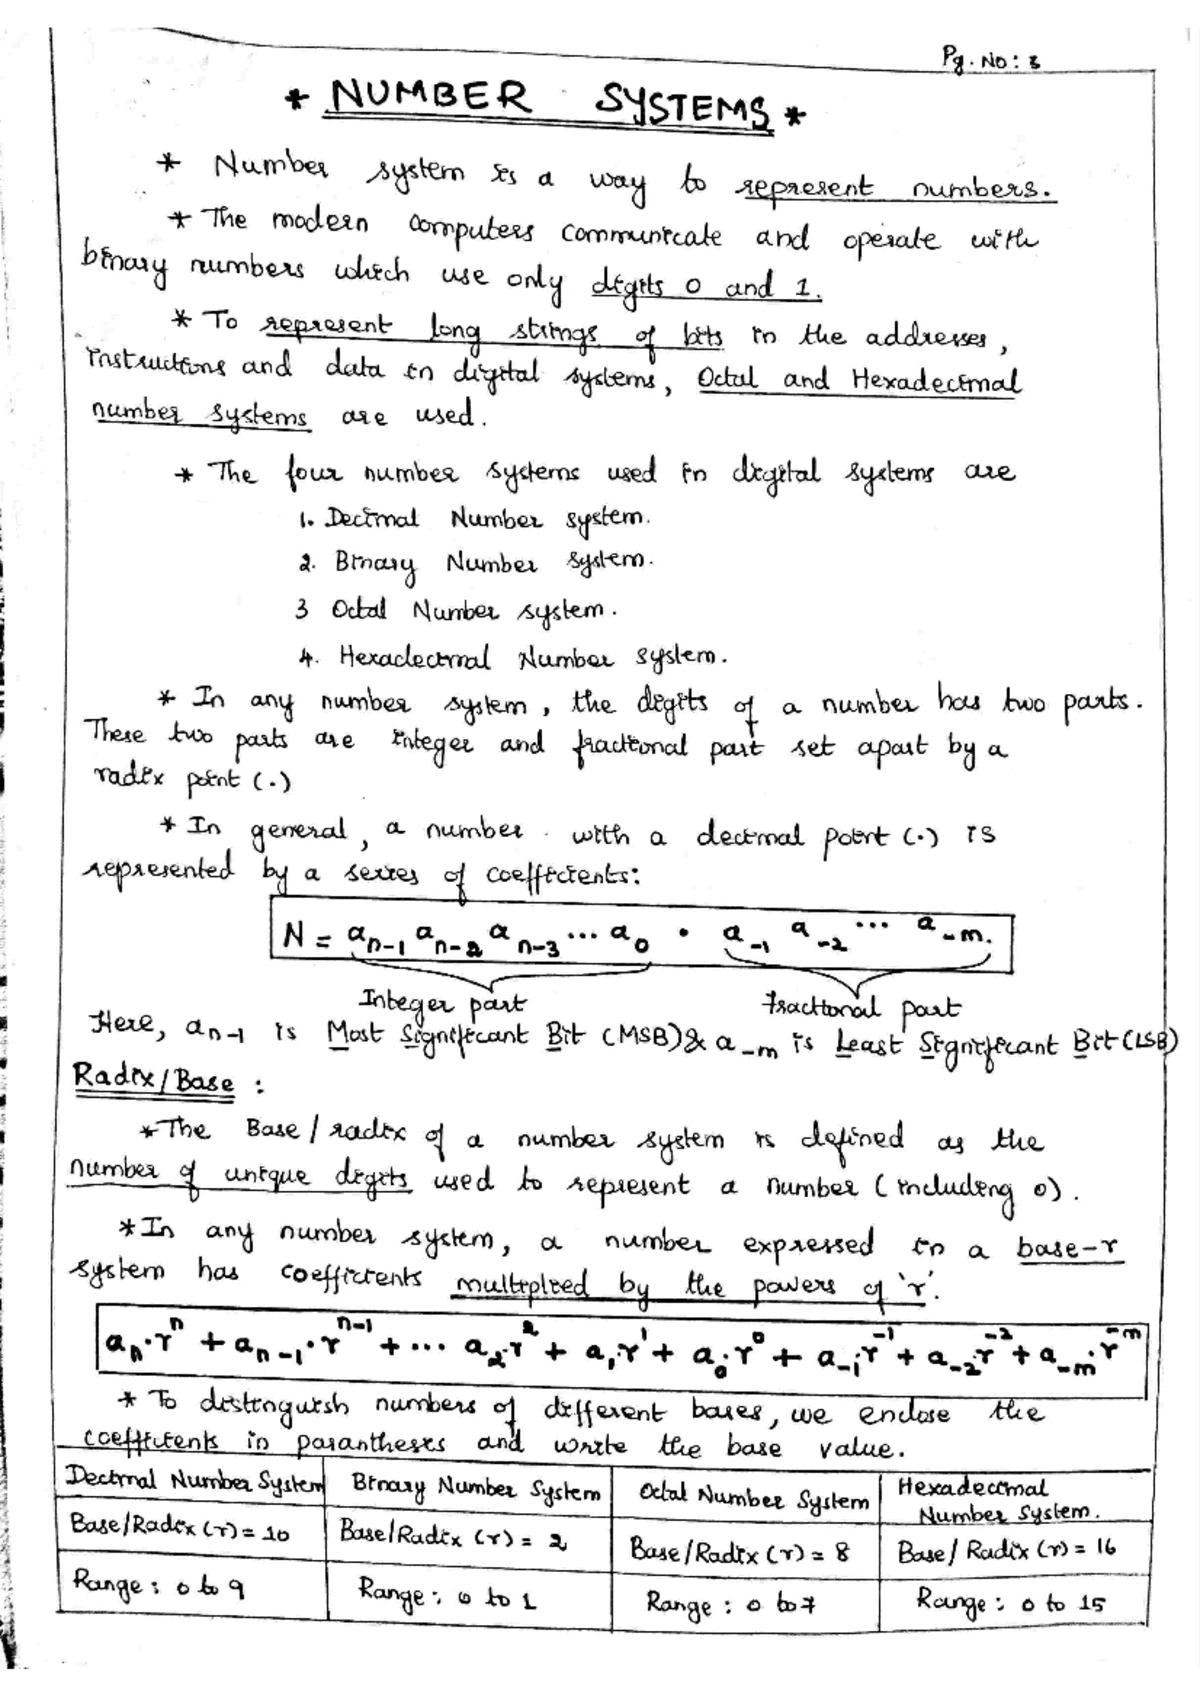 Pg. No: 3
* NUMBER SYSTEMS *
* Number system is a way to represent numbers.
* The modern computers communicate and operate with
binary numbers which use only digits 0 and 1.
* To represent long strings of bits in the addresses,
instructions and data in digital systems, Octal and Hexadecimal
number systems are used.
* The four number systems used in digital systems are
1. Decimal Number system.
2. Binary Number system.
3 Octal Number system.
4. Hexadecimal Number system.
* In any number system, the digits of a number has two parts.
These two parts are integer and fractional part set apart by a
radix point (.)
* In general, a number with a decimal point (.) is
represented by a series of coefficients:
N = a_{n-1} a_{n-2} a_{n-3} ... a_0 . a_{-1} a_{-2} ... a_{-m}.
Integer part fractional part
Here, a_{n-1} is Most Significant Bit (MSB) & a_{-m} is Least Significant Bit (LSB)
Radix/Base :
* The Base/radix of a number system is defined as the
number of unique digits used to represent a number (including 0).
* In any number system, a number expressed in a base-r
system has coefficients multiplied by the powers of 'r'.
a_n.r^n + a_{n-1}.r^{n-1} + ... a_2.r^2 + a_1.r^1 + a_0.r^0 + a_{-1}.r^{-1} + a_{-2}.r^{-2} + a_{-m}.r^{-m}
* To distinguish numbers of different bases, we enclose the
coefficients in parantheses and write the base value.
Decimal Number System Binary Number System Octal Number System Hexadecimal Number System.
Base/Radix (r) = 10 Base/Radix (r) = 2 Base/Radix (r) = 8 Base/Radix (r) = 16
Range: 0 to 9 Range: 0 to 1 Range: 0 to 7 Range: 0 to 15